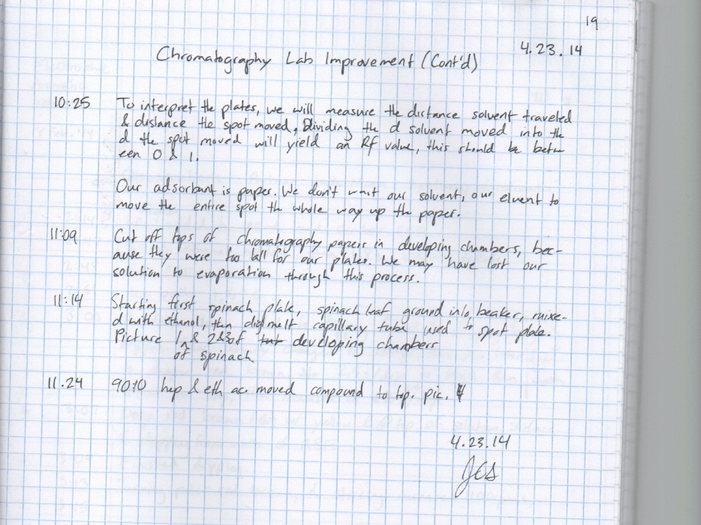 19
4.23.14
Chromatography Lab Improvement (Cont'd)
10:25 To interpret the plates, we will measure the distance solvent traveled
& distance the spot moved, Dividing the d solvent moved into the
d the spot moved will yield an Rf value, this should be betw
een 0 & 1.
Our adsorbant is paper. We don't want our solvent, our eluent to
move the entire spot the whole way up the paper.
11:09 Cut off tops of chromatography papers in developing chambers, bec-
ause they were too tall for our plates. We may have lost our
solution to evaporation through this process.
11:14 Starting first spinach plate, spinach leaf ground into, beaker, mixe-
d with ethanol, then did melt capillary tube, used to spot plate.
Picture 1, & 2&3 of developing chambers
of spinach
11.24 90:10 hep & eth ac. moved compound to top. pic. 4
4.23.14
JCS